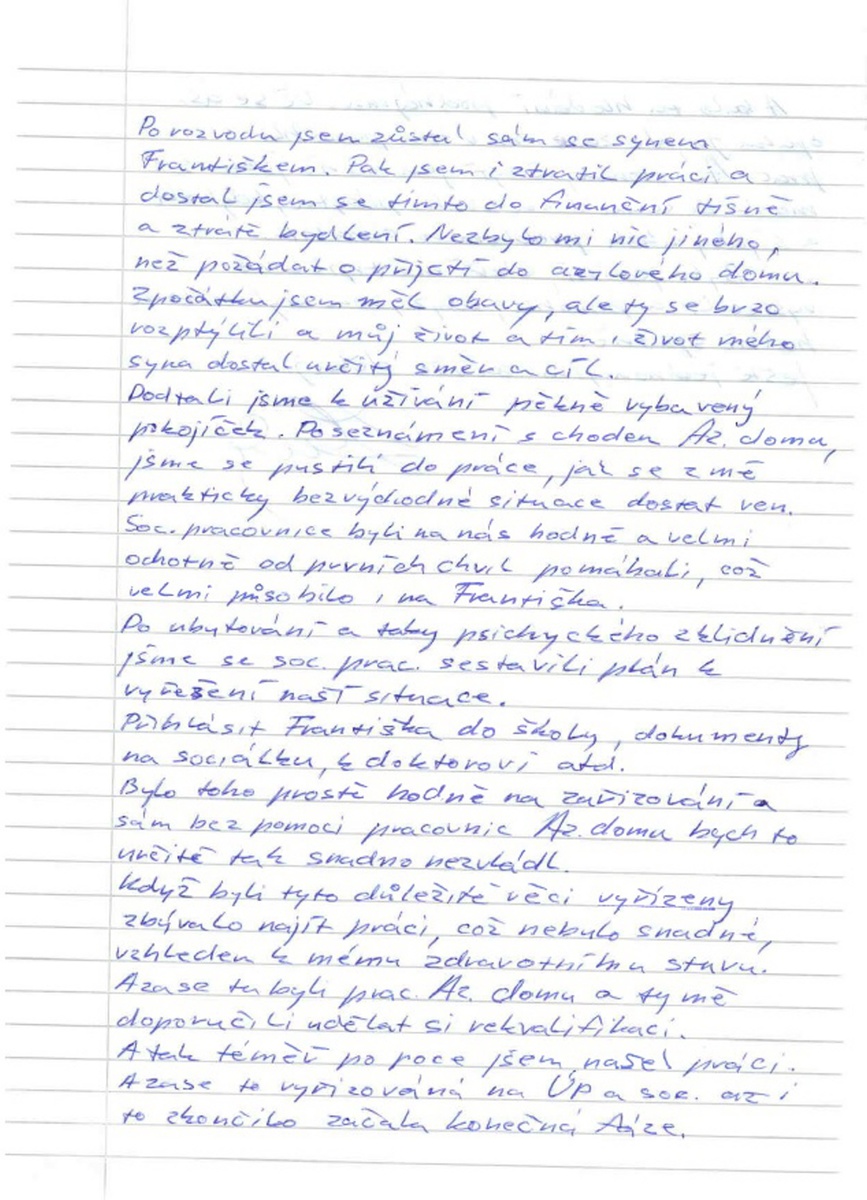 Po rozvodu jsem zůstal sám se synem
Františkem. Pak jsem i ztratil práci a
dostal jsem se tímto do finanční tísně
a ztratě bydlení. Nezbylo mi nic jiného,
než požádat o přijetí do azylového domu.
Zpočátku jsem měl obavy, ale ty se brzo
rozptýlili a můj život a tím i život mého
syna dostal určitý směr a cíl.
Dostali jsme k užívání pěkně vybavený
pokojíček. Po seznámení s chodem Az. domu,
jsme se pustili do práce, jak se z mé
prakticky bezvýchodné situace dostat ven.
Soc. pracovnice byli na nás hodně a velmi
ochotně od prvních chvil pomáhali, což
velmi působilo i na Františka.
Po ubytování a taky psichyckého zklidnění
jsme se soc. prac. sestavili plán k
vyřešení naší situace.
Přihlásit Františka do školy, dokumenty
na sociálku, k doktorovi atd.
Bylo toho prostě hodně na zařizování a
sám bez pomoci pracovnic Az. domu bych to
určitě tak snadno nezvládl.
Když byli tyto důležité věci vyřízeny
zbývalo najít práci, což nebylo snadné,
vzhledem k mému zdravotnímu stavu.
A zase tu byli prac. Az. domu a ty mě
doporučili udělat si rekvalifikaci.
A tak téměř po roce jsem našel práci.
A zase to vyřizováná na ÚP a soc. až i
to skončilo začala konečná fáze.